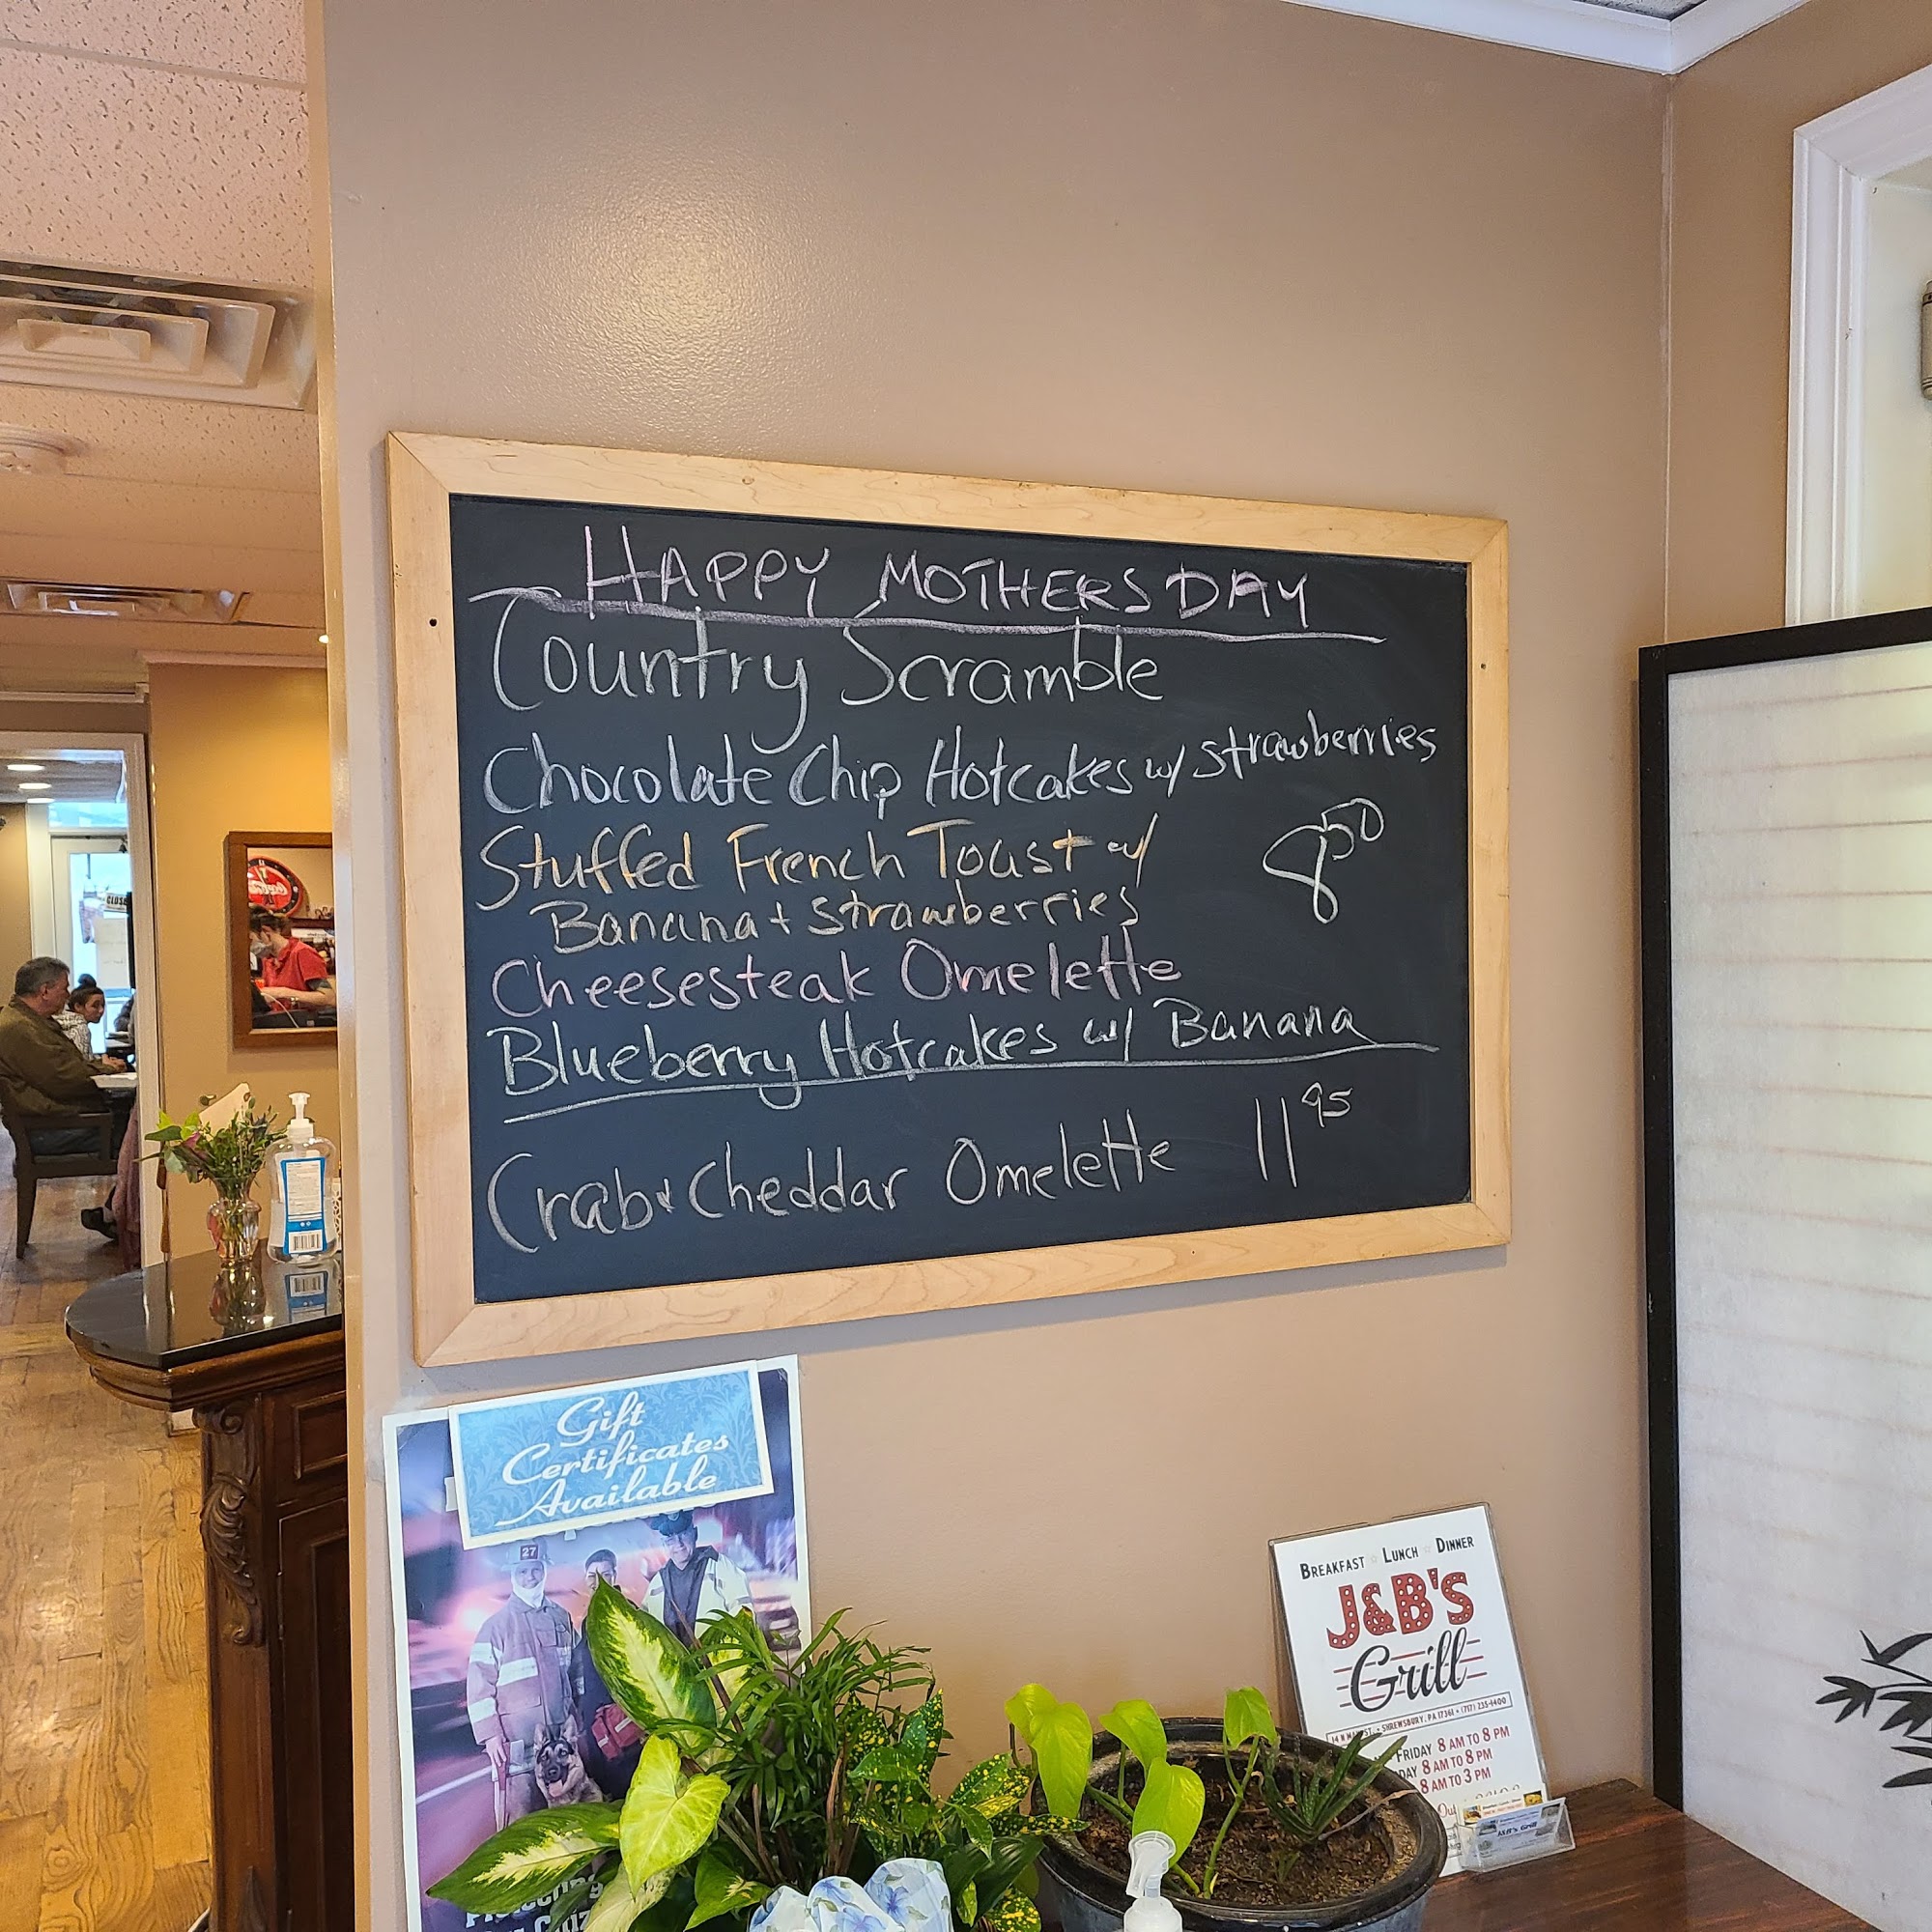 HAPPY MOTHERS DAY
Country Scramble
Chocolate Chip Hotcakes w/ strawberries
Stuffed French Toast w/
Banana + Strawberries
8⁵⁰
Cheesesteak Omelette
Blueberry Hotcakes w/ Banana
Crab & Cheddar Omelette 11⁹⁵
Gift
Certificates
Available
27
BREAKFAST LUNCH DINNER
J&B'S
Grill
14 N MAIN ST. • SHREWSBURY, PA 17361 • (717) 235-1400
FRIDAY 8 AM TO 8 PM
DAY 8 AM TO 8 PM
8 AM TO 3 PM
J&B's Grill